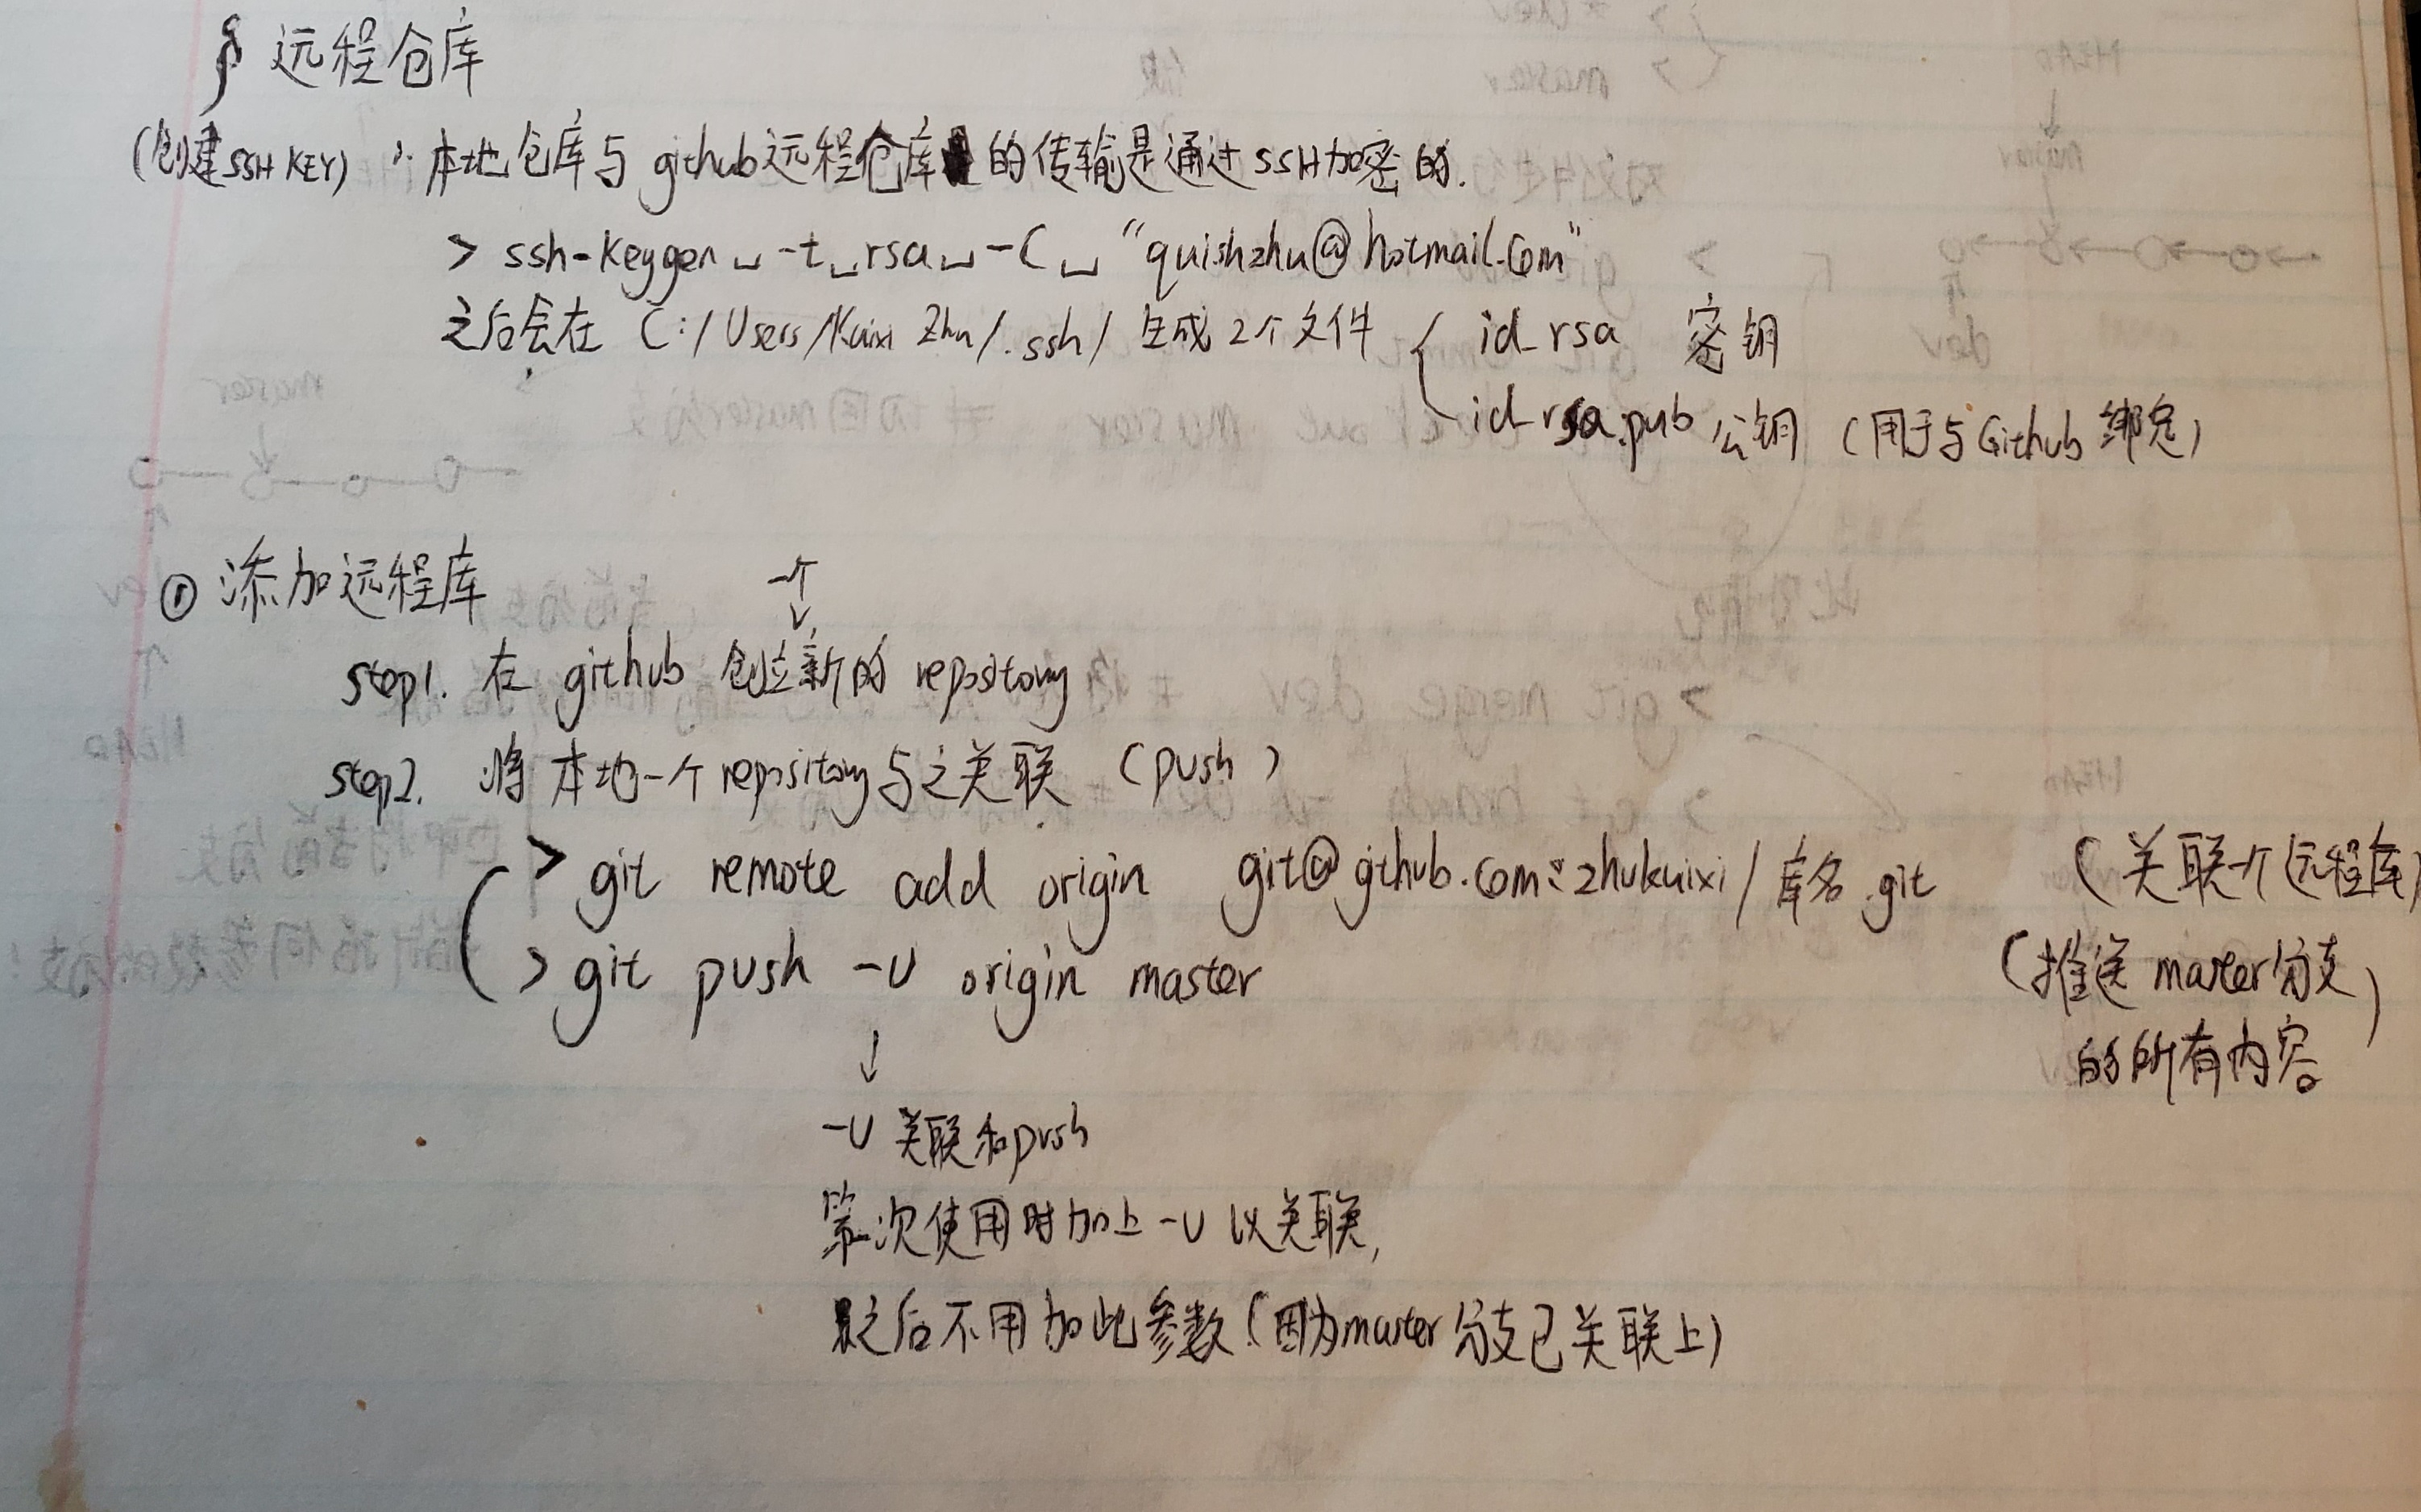 § 远程仓库
(创建SSH KEY) ∵ 本地仓库与github远程仓库的传输是通过SSH加密的.
> ssh-keygen␣-t␣rsa␣-C␣"quishzhu@hotmail.com"
之后会在 C:/Users/Kaixi Zhu/.ssh/ 生成2个文件 { id_rsa 密钥
id_rsa.pub 公钥 (用于与Github绑定)
① 添加远程库
一个
step1. 在 github 创建新的 repository
step2. 将本地一个repository与之关联 (push)
> git remote add origin git@github.com:zhukaixi/库名.git (关联一个远程库)
> git push -u origin master (推送 master分支
的所有内容)
↓
-u 关联和push
第一次使用时加上 -u 以关联,
之后不用加此参数(因为master分支已关联上)